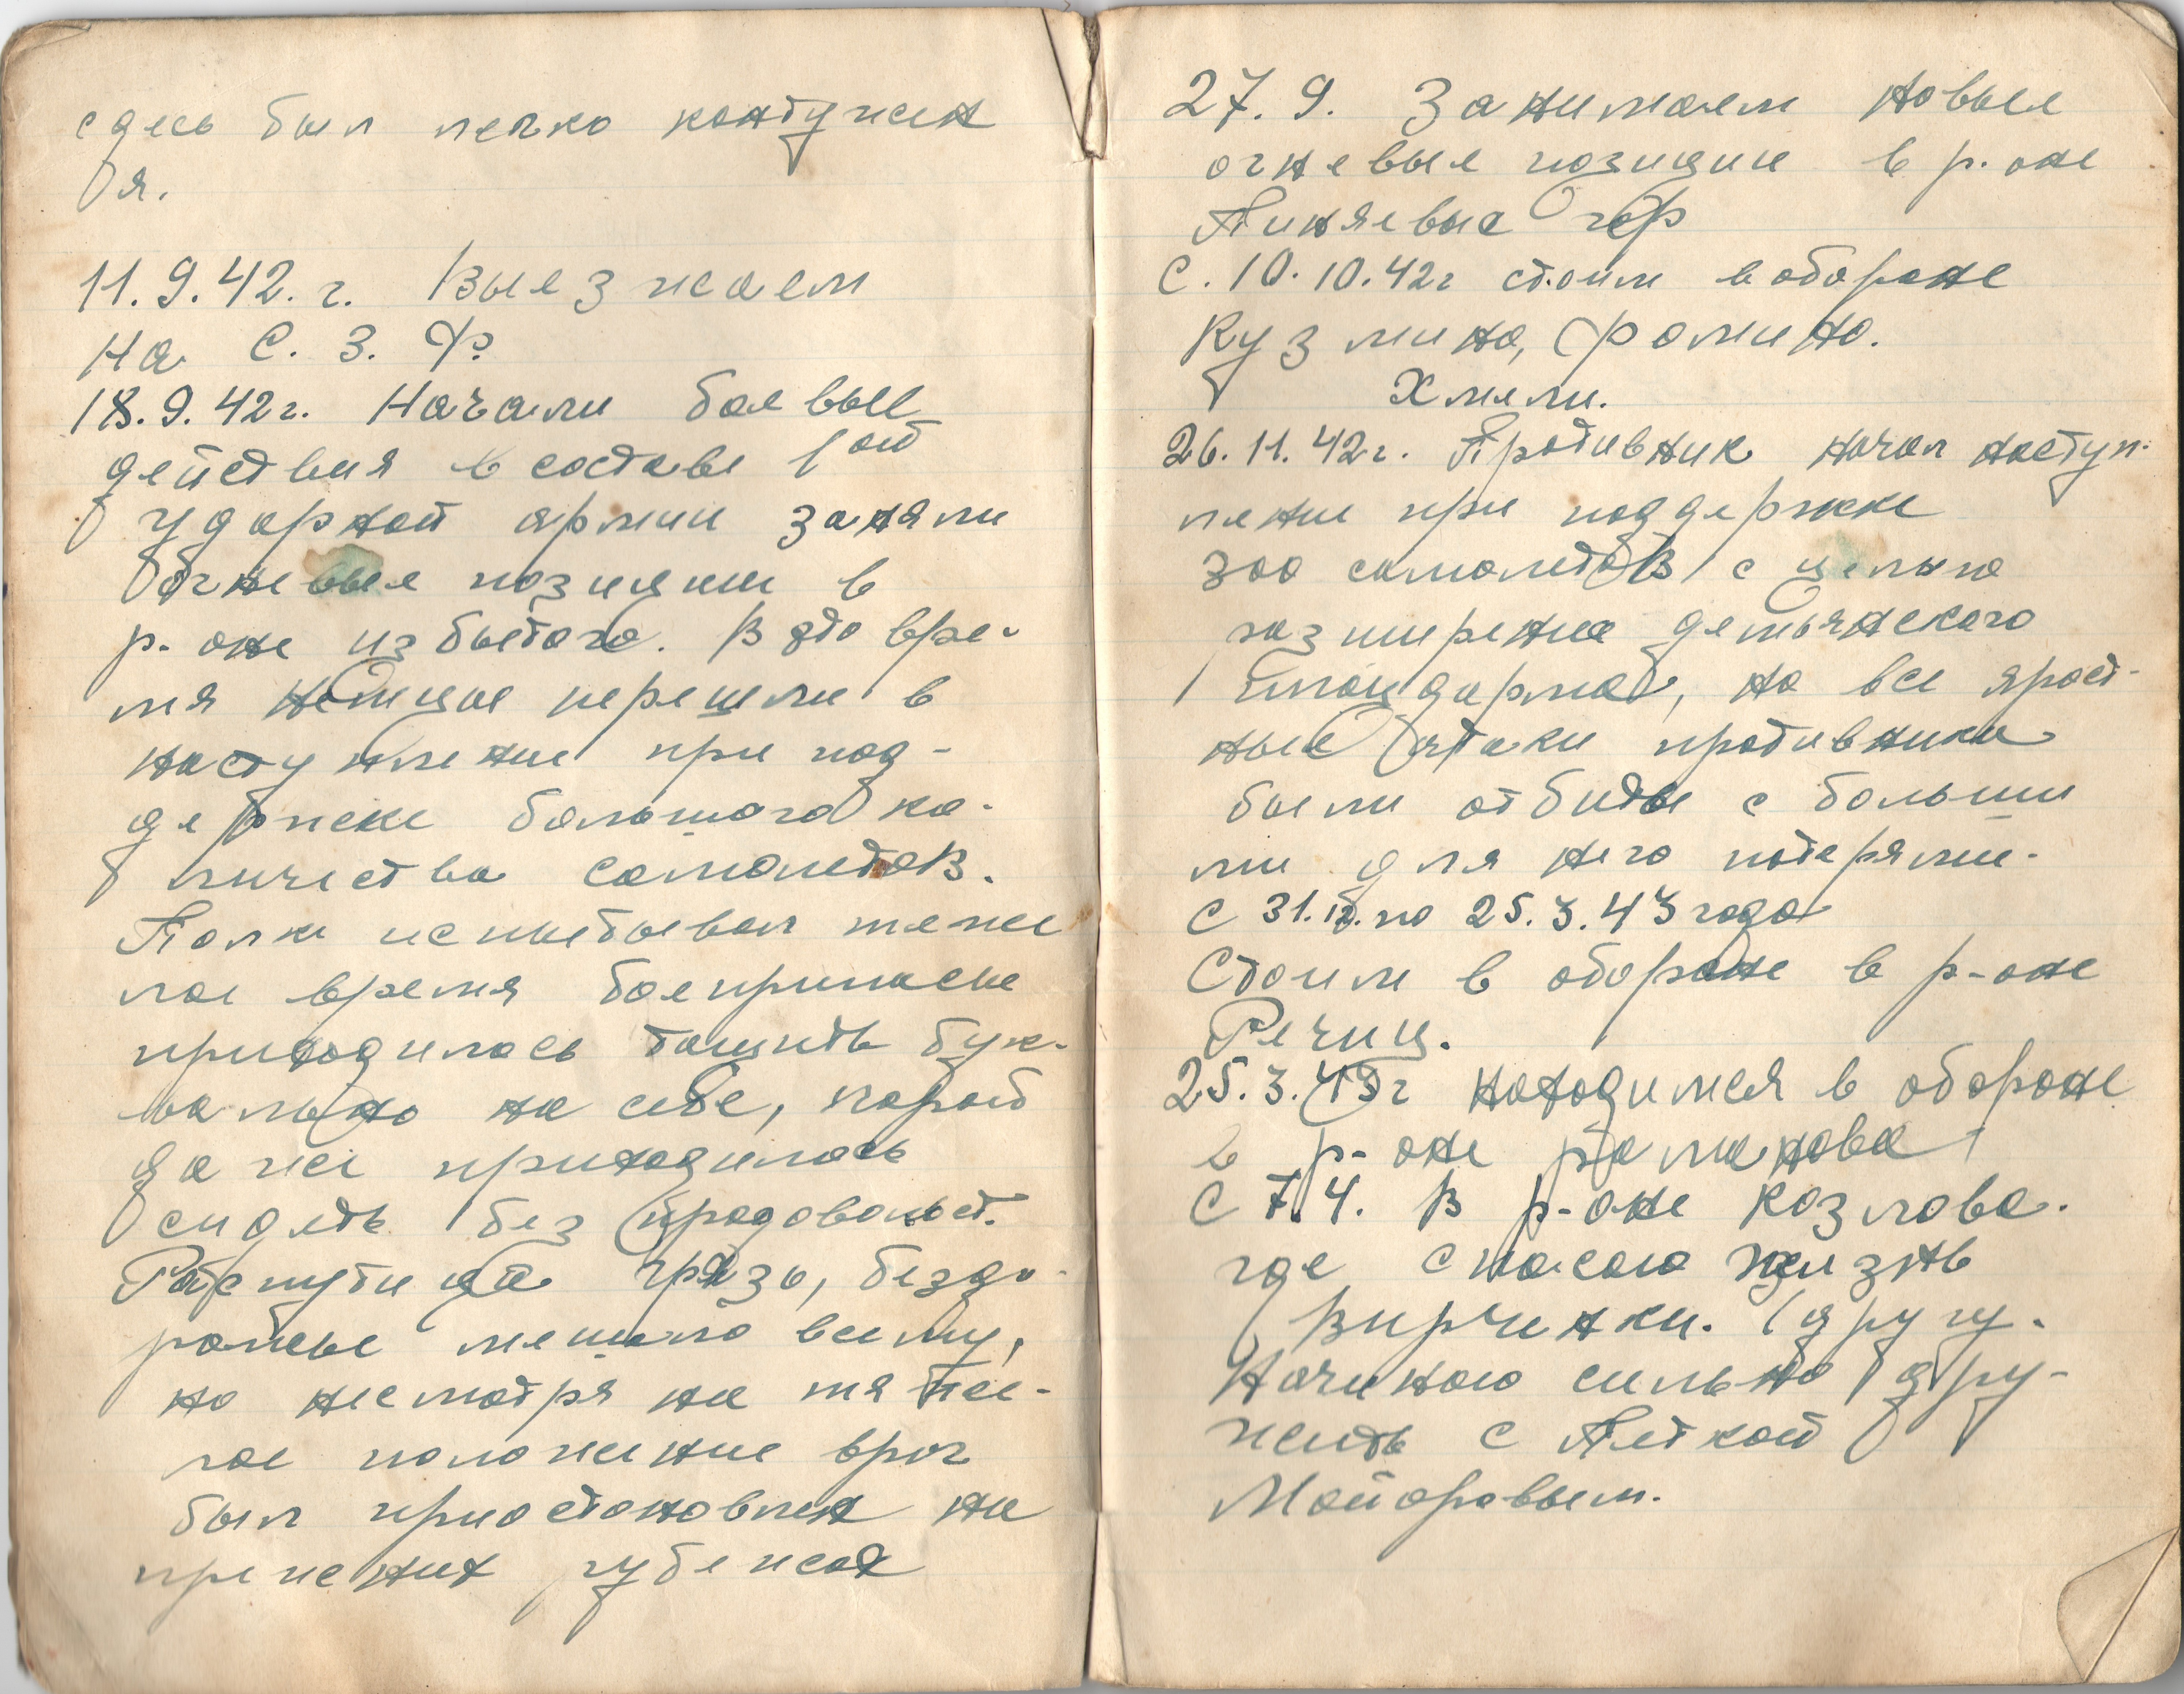 сдесь был легко контужен
я.
11.9.42.г. Выезжаем
на С. З. Ф.
18.9.42г. Начали боевые
действия в составе 1ой
ударной армии заняли
огневые позиции в
р-оне избытого. В это вре-
мя немцы перешли в
наступление при под-
держке большого ко-
личества самолетов.
Полк испытывал тяже
лое время боеприпасы
приходилось тащить бук-
вально на себе, порой
даже приходилось
сидеть без продовольст.
Распутица грязь, бездо-
рожье мешало всему,
но несмотря на тяже-
лое положение враг
был приостановлен на
прежних рубежах
27.9. Занимаем новые
огневые позиции в р-оне
Пиняевые гор
С. 10.10.42г стоим в обороне
Кузмино, Фомино.
Хмели.
26.11.42г. Противник начал наступ-
ление при поддержке
300 самолетов с целью
разширения демьянского
плацдарма, но все ярост-
ные атаки противника
были отбиты с больши
ми для него потерями.
С 31.12. по 25.3.43 года
Стоим в обороне в р-оне
Речиц.
25.3.43г находимся в обороне
в р-оне Романова
С 7.4. В р-оне Козлова.
где спасаю жизнь
Вирченки. (другу.
Начинаю сильно дру-
жить с Петкой
Майоровым.